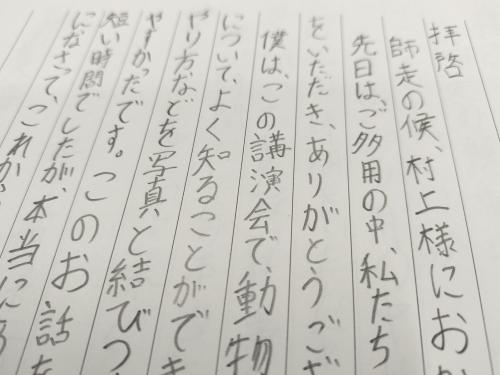 拝啓
師走の候、村上様にお
先日は、ご多用の中、私たち
をいただき、ありがとうござ
僕は、この講演会で、動物
について、よく知ることができ
やり方などを写真と結びつ
やすかったです。このお話を
短い時間でしたが、本当に
になさって、これか